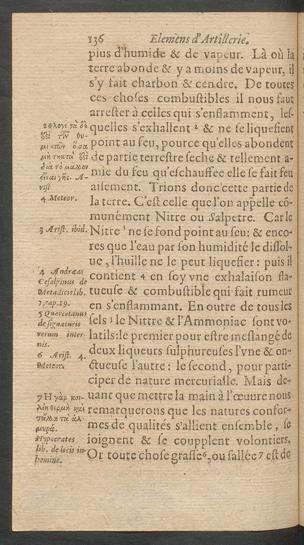 136 Elemens d'Artillerie.
plus d'humide & de vapeur. Là où la
terre abonde & y a moins de vapeur, il
s'y fait charbon & cendre. De toutes
ces choses combustibles il nous faut
arrester à celles qui s'enflamment, les-
quelles s'exhallent & ne se liquefient
point au feu, pource qu'elles abondent
de partie terrestre seche & tellement a-
mie du feu qu'eschauffee elle se fait feu
aisement. Tirions donc cette partie de
la terre. C'est celle que l'on appelle cō-
munément Nitre ou Salpetre. Car le
Nitre ne se fond point au feu: & enco-
res que l'eau par son humidité le dissol-
ue, l'huille ne le peut liquefier: puis il
contient 4 en soy vne exhalaison fla-
tueuse & combustible qui fait rumeur
en s'enflammant. En outre de tous les
sels 5 le Nittre & l'Ammoniac sont vo-
latils: le premier pour estre meslangé de
deux liqueurs sulphureuses l'vne & on-
ctueuse l'autre: le second, pour parti-
ciper de nature mercurialle. Mais de-
uant que mettre la main à l'œuure nous
remarquerons que les natures confor-
mes de qualités s'allient ensemble, se
ioignent & se coupplent volontiers.
Or toute chose grasse 6, ou sallée 7 est de
4 Meteor.
3 Arist. ibid.
4 Andræas
Cesalpinus de
Metallicis lib.
1. cap. 19.
5 Quercetanus
de signaturis
rerum inter-
nis.
6 Arist. 4.
Meteor.
Hypocrates
lib. de locis in
homine.